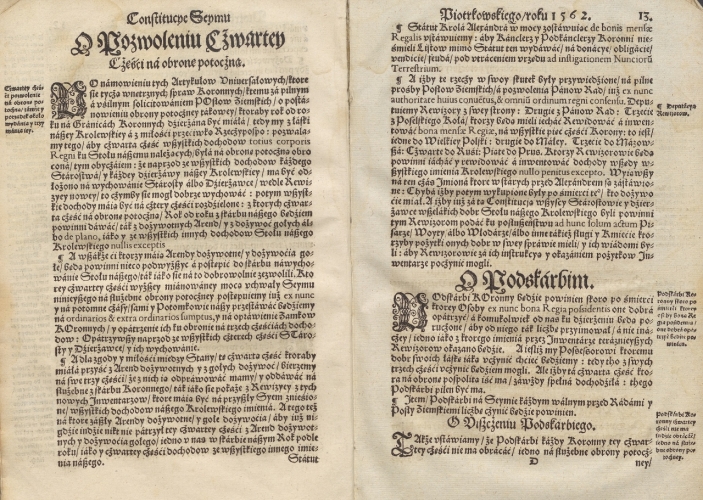 Constitucye Seymu
O Pozwoleniu Czwartey
Części ná obronę potoczną.
PO námowieniu tych Artykułow Vniwersałowych/ktore
sie tyczą wnetrznych spraw Koronnych/
á vśilnym solicitowaniem POsłow Ziemskich/ o postá=
nowieniu obrony potoczney tákowey/ ktoraby rok doro=
ku ná Gránicách KOronnych dzierżána być miáłá/ tedy my z łáski
nászey Krolewskiey á z miłości przeciwko Rzeczypospo: pozwala=
my tego/ áby czwarta część wszystkich dochodow totius corporis
Regni ku Stołu nászemu należących/ byłá ná obronę potoczną obro
coná/ tym obyczáiem: że naprzod ze wszystkich dochodow káżdego
Stárostwá/ y káżdey dzierżáwy nászey Krolewskiey/ ma być od=
łożono ná wychowánie Stárosty álbo Dzierżawce/ wedle Rewi=
zyey nowey/ to czymby sie mogł dobrze wychowáć: potym wszyst=
kie dochody máią być ná cztery części rozdzielone: z ktorych czwar=
ta część ná obronę potoczną/ Rok od roku z skárbu nászego będziem
powinni dáwáć/ ták z dożywotnych Arend/ y z dożywoć gołych ál=
bo de plano, iáko y ze wszystkich innych dochodow Stołu nászego
Krolewskiego nullis exceptis.
¶ A wszákże ci ktorzy máią Arendy dożywotne/ y dożywocia go=
łe/ będą powinni
wánie Stołu nászego/ ták iáko sie ná to dobrowolnie zezwolili. Kto
rey czwartey części wyższey miánowáney mocą vchwały Seymu
ninieyszego ná służebne obrony potoczney postępuiemy iuż ex nunc
y ná potomne czásy/ sámy y Potomkowie nászy przestáwáć będziemy
ná ordinariis & extra ordinariis sumptus, y ná opátrzenie Zamkow
KOronnych/ y opátrzenie ich ku obronie ná trzech częściách docho=
dow: Opátrzywszy naprzod ze wszystkich czterech części STáro=
sty y Dzierżáwce/ y ich wychowánie.
¶ A dla zgody y miłości miedzy Stany/ tę czwartą część ktoraby
miáłá przyść z Arend dożywotnych y z gołych dożywoć/ bierzemy
ná swe trzy części: że z nich ią odpráwowáć mamy/ y oddawáć ná
służebne z skárbu Koronnego/ ták iáko sie pokaże z Rewizyey z tych
nowych Inwentarzow/ ktore máią być ná przyszły Seym zniesio=
ne/ wszystkich dochodow nászego Krolewskiego imienia. A tego też
ná ktore zászły Arendy dożywotne/ y gołe dożywocia/ áby iuż ni=
gdzie indzie nikt nie pátrzył tey czwartey części z Arend dożywot=
nych y dożywocia gołego/ iedno v nas w skárbie nászym Rok podle
roku/ iáko y czwartey części dochodow ze wszystkiego innego imie=
nia nászego.
Státut
Piotrkowskiego/roku 1562.
13.
¶ Státut Krolá Alexandrá w mocy zostáwuiąc de bonis mensæ
Regalis vstáwuiemy: áby Kánclerzy y Podkánclerzy Koronni nie
śmieli Listow mimo Státut ten wydáwáć/ ná donácye/ obligácie/
wendicie/ feudá/ pod vtráceniem vrzędu ad instigationem Nunciorũ
Terrestrium.
¶ A iżby te rzeczy w swoy skutek były przywiedzione/ ná pilne
prośby Posłow Ziemskich/ á pozwolenia Pánow Rad/ iuż ex nunc
authoritate huius conuentus, & omniũ ordinum regni consensu. Depu=
tuiemy Rewizory z swey strony: Drugie z Pánow Rad: Trzecie
z Poselskiego Kołá/ ktorzy będą mieli iácháć Rewidowáć á inwen=
towáć bona mensæ Regiæ, ná wszystkie pięć części Korony: to iest/
iedne do Wielkiey Polski: drugie do Máłey. Trzecie do Mázow=
szá: Czwarte do Rusi: Piąte do Prus. Ktorzy Rewizorowie będą
powinni iácháć y rewidowáć á inwentowáć dochody wszędy w=
szystkiego imienia Krolewskiego nullo penitus excepto. Wyiąwszy
ná ten czás Imioná ktore w stárych przez Alexandrem są zástáwio=
ne: Chybá iżby potym wykupione były po śmierci te/ kto dożywo=
cie miał. A iżby iuż zá tą Constitucyą wszyscy Stárostowie y dzier=
żáwce wszelákich dobr Stołu nászego Krolewskiego byli powinni
tym Rewizorom podáć ku posłuszeństwu ad hunc solum actum Pi=
sárze/ Woyty álbo Włodárze/ álbo inne tákież sługi y Kmiecie kto=
rzyby pożytki onych dobr w swey spráwie mieli/ y ich wiádomi by=
li: áby Rewizorowie zá ich instrukcyą y okazániem pożytkow In=
wentarze poczynić mogli.
O Podskárbim.
POdskárbi KOronny będzie powinien skoro po śmierci
ktorey Osoby ex nunc bona Regia possidentis one dobrá
opátrzyć/ á komukolwiek od nas ku dzierżeniu będą po=
ruczone/ áby od niego ták liczbę przyimował/ á nie iná=
czey/ iedno iáko z ktorego imienia przez Inwentarze teráznieyszych
Rewizorow okazano będzie. A iesliż my Possessorowi ktoremu
dobr swoich łáskę iáką vczynić chcieć będziemy: tedy tho z swych
trzech części vczynić będziem mogli. Ale iżby tá czwarta część kto=
ra ná obronę pospolitą iść ma/ záwżdy spełná dochodziłá: thego
Podskárbi pilen być ma.
¶ Item/ Podskárbi ná Seymie káżdym wálnym przed Rádámi y
Posły Ziemskimi liczbę czynić będzie powinien.
O Vliżeniu Podskárbiego.
TAkże vstáwiamy/ że Podskárbi káżdy Koronny tey czwar=
tey części nie ma obracáć/ iedno ná służebne obrony potocz=
D
ney/
¶ Deputácya
Rewizorow.